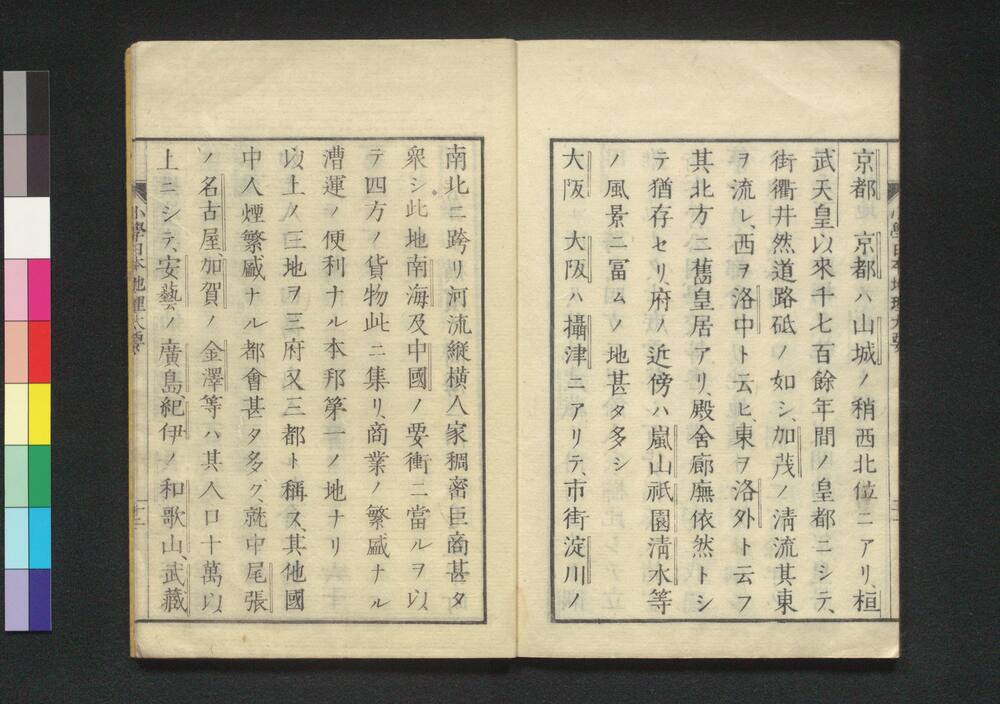 京都　京都ハ山城ノ稍西北位ニアリ、桓
武天皇以來千七百餘年間ノ皇都ニシテ、
街衢井然道路砥ノ如シ、加茂ノ清流其東
ヲ流レ、西ヲ洛中ト云ヒ、東ヲ洛外ト云フ
其北方ニ舊皇居アリ、殿舎廊廡依然トシ
テ猶存セリ、府ノ近傍ハ嵐山祇園清水等
ノ風景ニ冨ムノ地甚タ多シ
大阪　大阪ハ攝津ニアリテ、市街淀川ノ
南北ニ跨リ河流縱横、人家稠密巨商甚タ
衆シ此地南海及中國ノ要衝ニ當ルヲ以
テ四方ノ貨物此ニ集リ、商業ノ繁盛ナル
漕運ノ便利ナル本邦第一ノ地ナリ
以上ノ三地ヲ三府又三都ト稱ス、其他國
中人煙繁盛ナル都會甚タ多ク、就中尾張
ノ名古屋、加賀ノ金澤等ハ其人口十萬以
上ニシテ、安藝ノ廣島、紀伊ノ和歌山、武藏
小學日本地理大要
十二